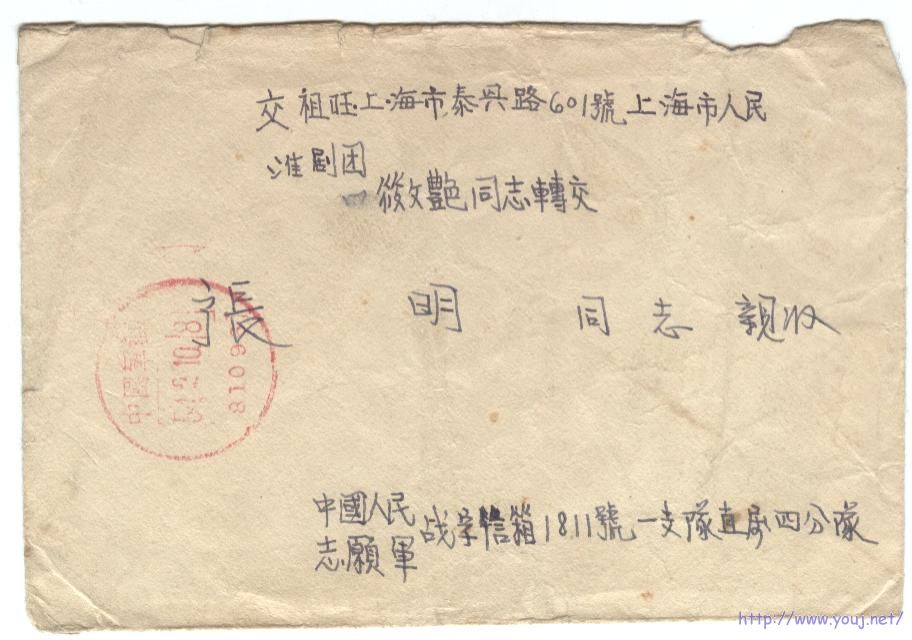 交 祖旺.上海市泰兴路601號上海市人民
淮剧团
筱文艷同志轉交
張 明 同 志 親收
中國軍郵
54.2.10.18
8109
中國人民
志願軍 战字信箱1811號一支隊直属四分隊
http://www.youj.net/